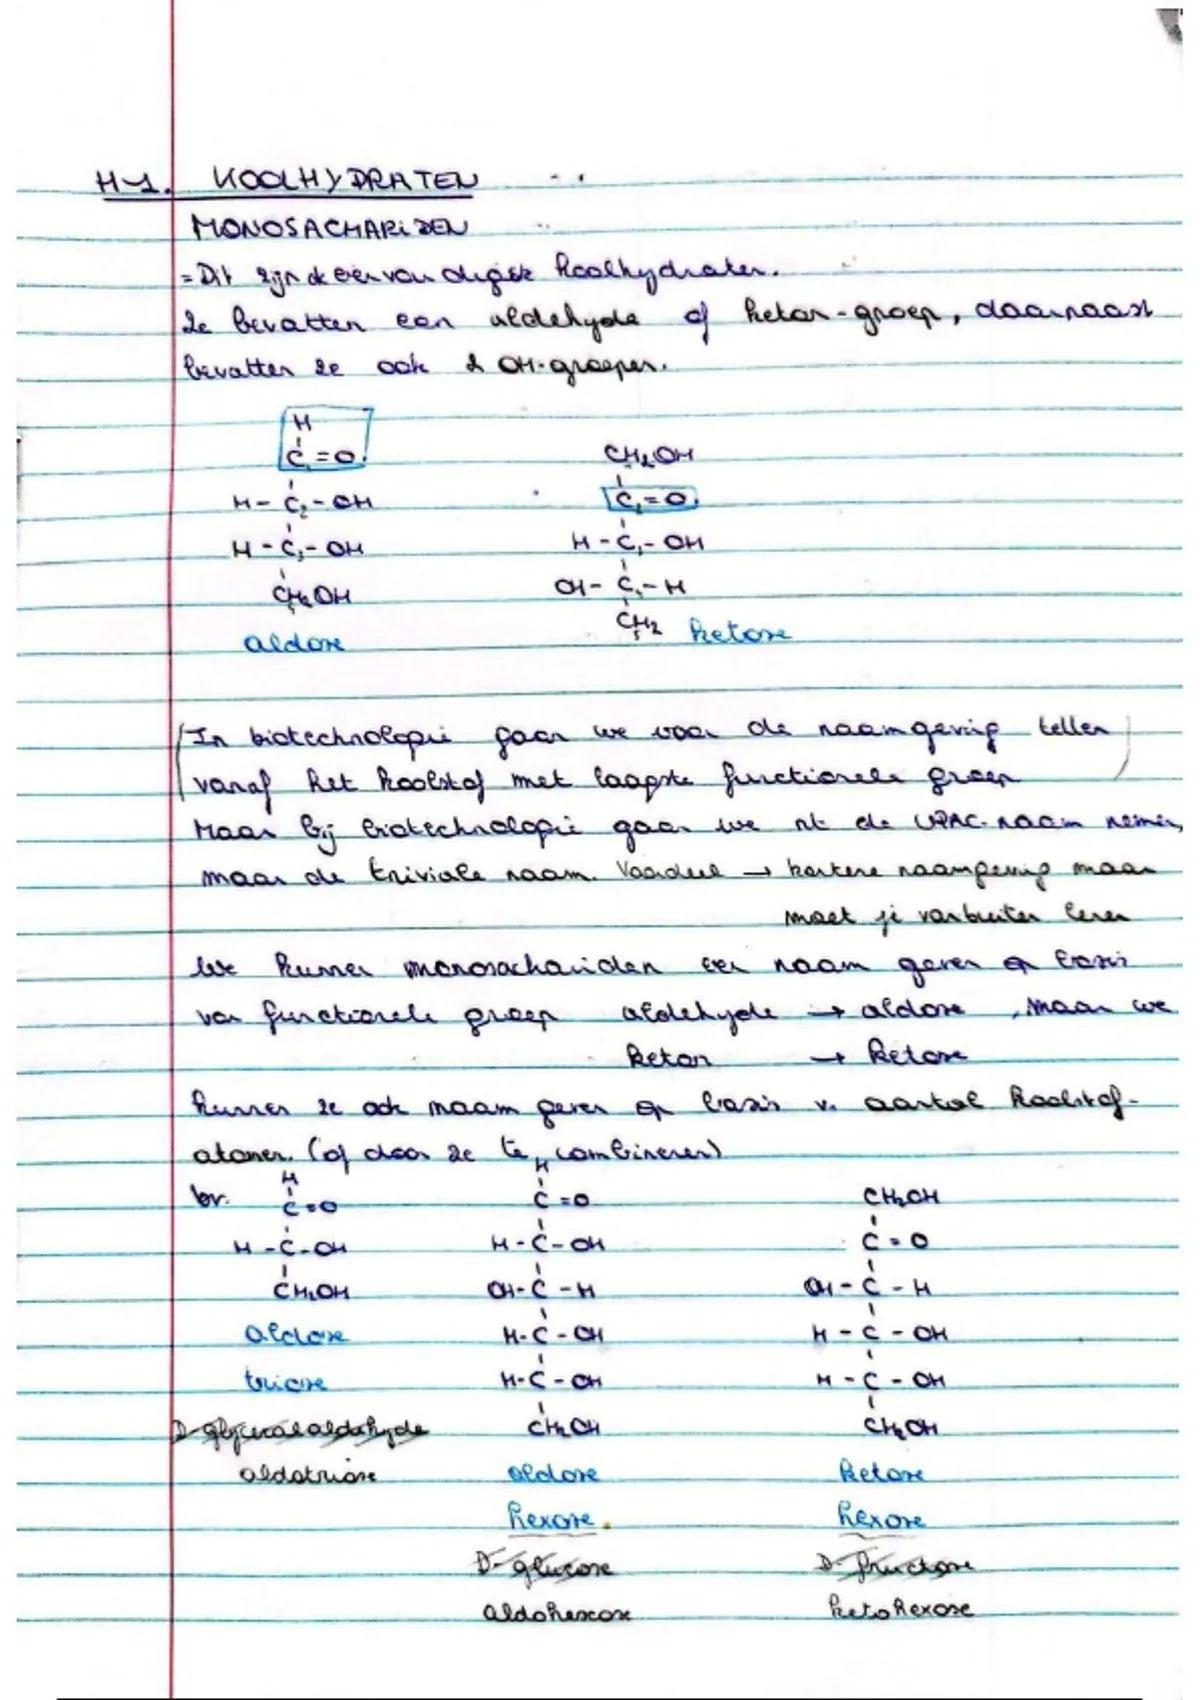 H-1. KOOLHYDRATEN
MONOSACHARIDEN
= Dit zijn de eenvoudigste koolhydraten.
Ze bevatten een aldehyde of keton-groep, daarnaast
bevatten ze ook 2 OH-groepen.
H
C1=O
H-C2-OH
H-C3-OH
CH2OH
aldose
CH2OH
C2=O
H-C3-OH
OH-C-H
CH2
5
ketose
(In biotechnologie gaan we voor de naamgeving tellen
vanaf het koolstof met laagste functionele groep)
Maar bij biotechnologie gaan we nt de UPAC-naam nemen,
maar de triviale naam. Voordeel → kortere naamgeving maar
moet je vanbuiten leren
We kunnen monosachariden een naam geven op basis
van functionele groep aldehyde → aldose, maar we
keton → ketose
kunnen ze ook naam geven op basis v. aantal koolstof-
atomen. (of door ze te combineren)
bv.
H
C=O
H-C-OH
CH2OH
aldose
triose
D-glyceralaldehyde
aldotriose
H
C=O
H-C-OH
OH-C-H
H-C-OH
H-C-OH
CH2OH
aldose
hexose.
D-glucose
aldohexose
CH2OH
C=O
OH-C-H
H-C-OH
H-C-OH
CH2OH
ketose
hexose
D-fructose
ketohexose